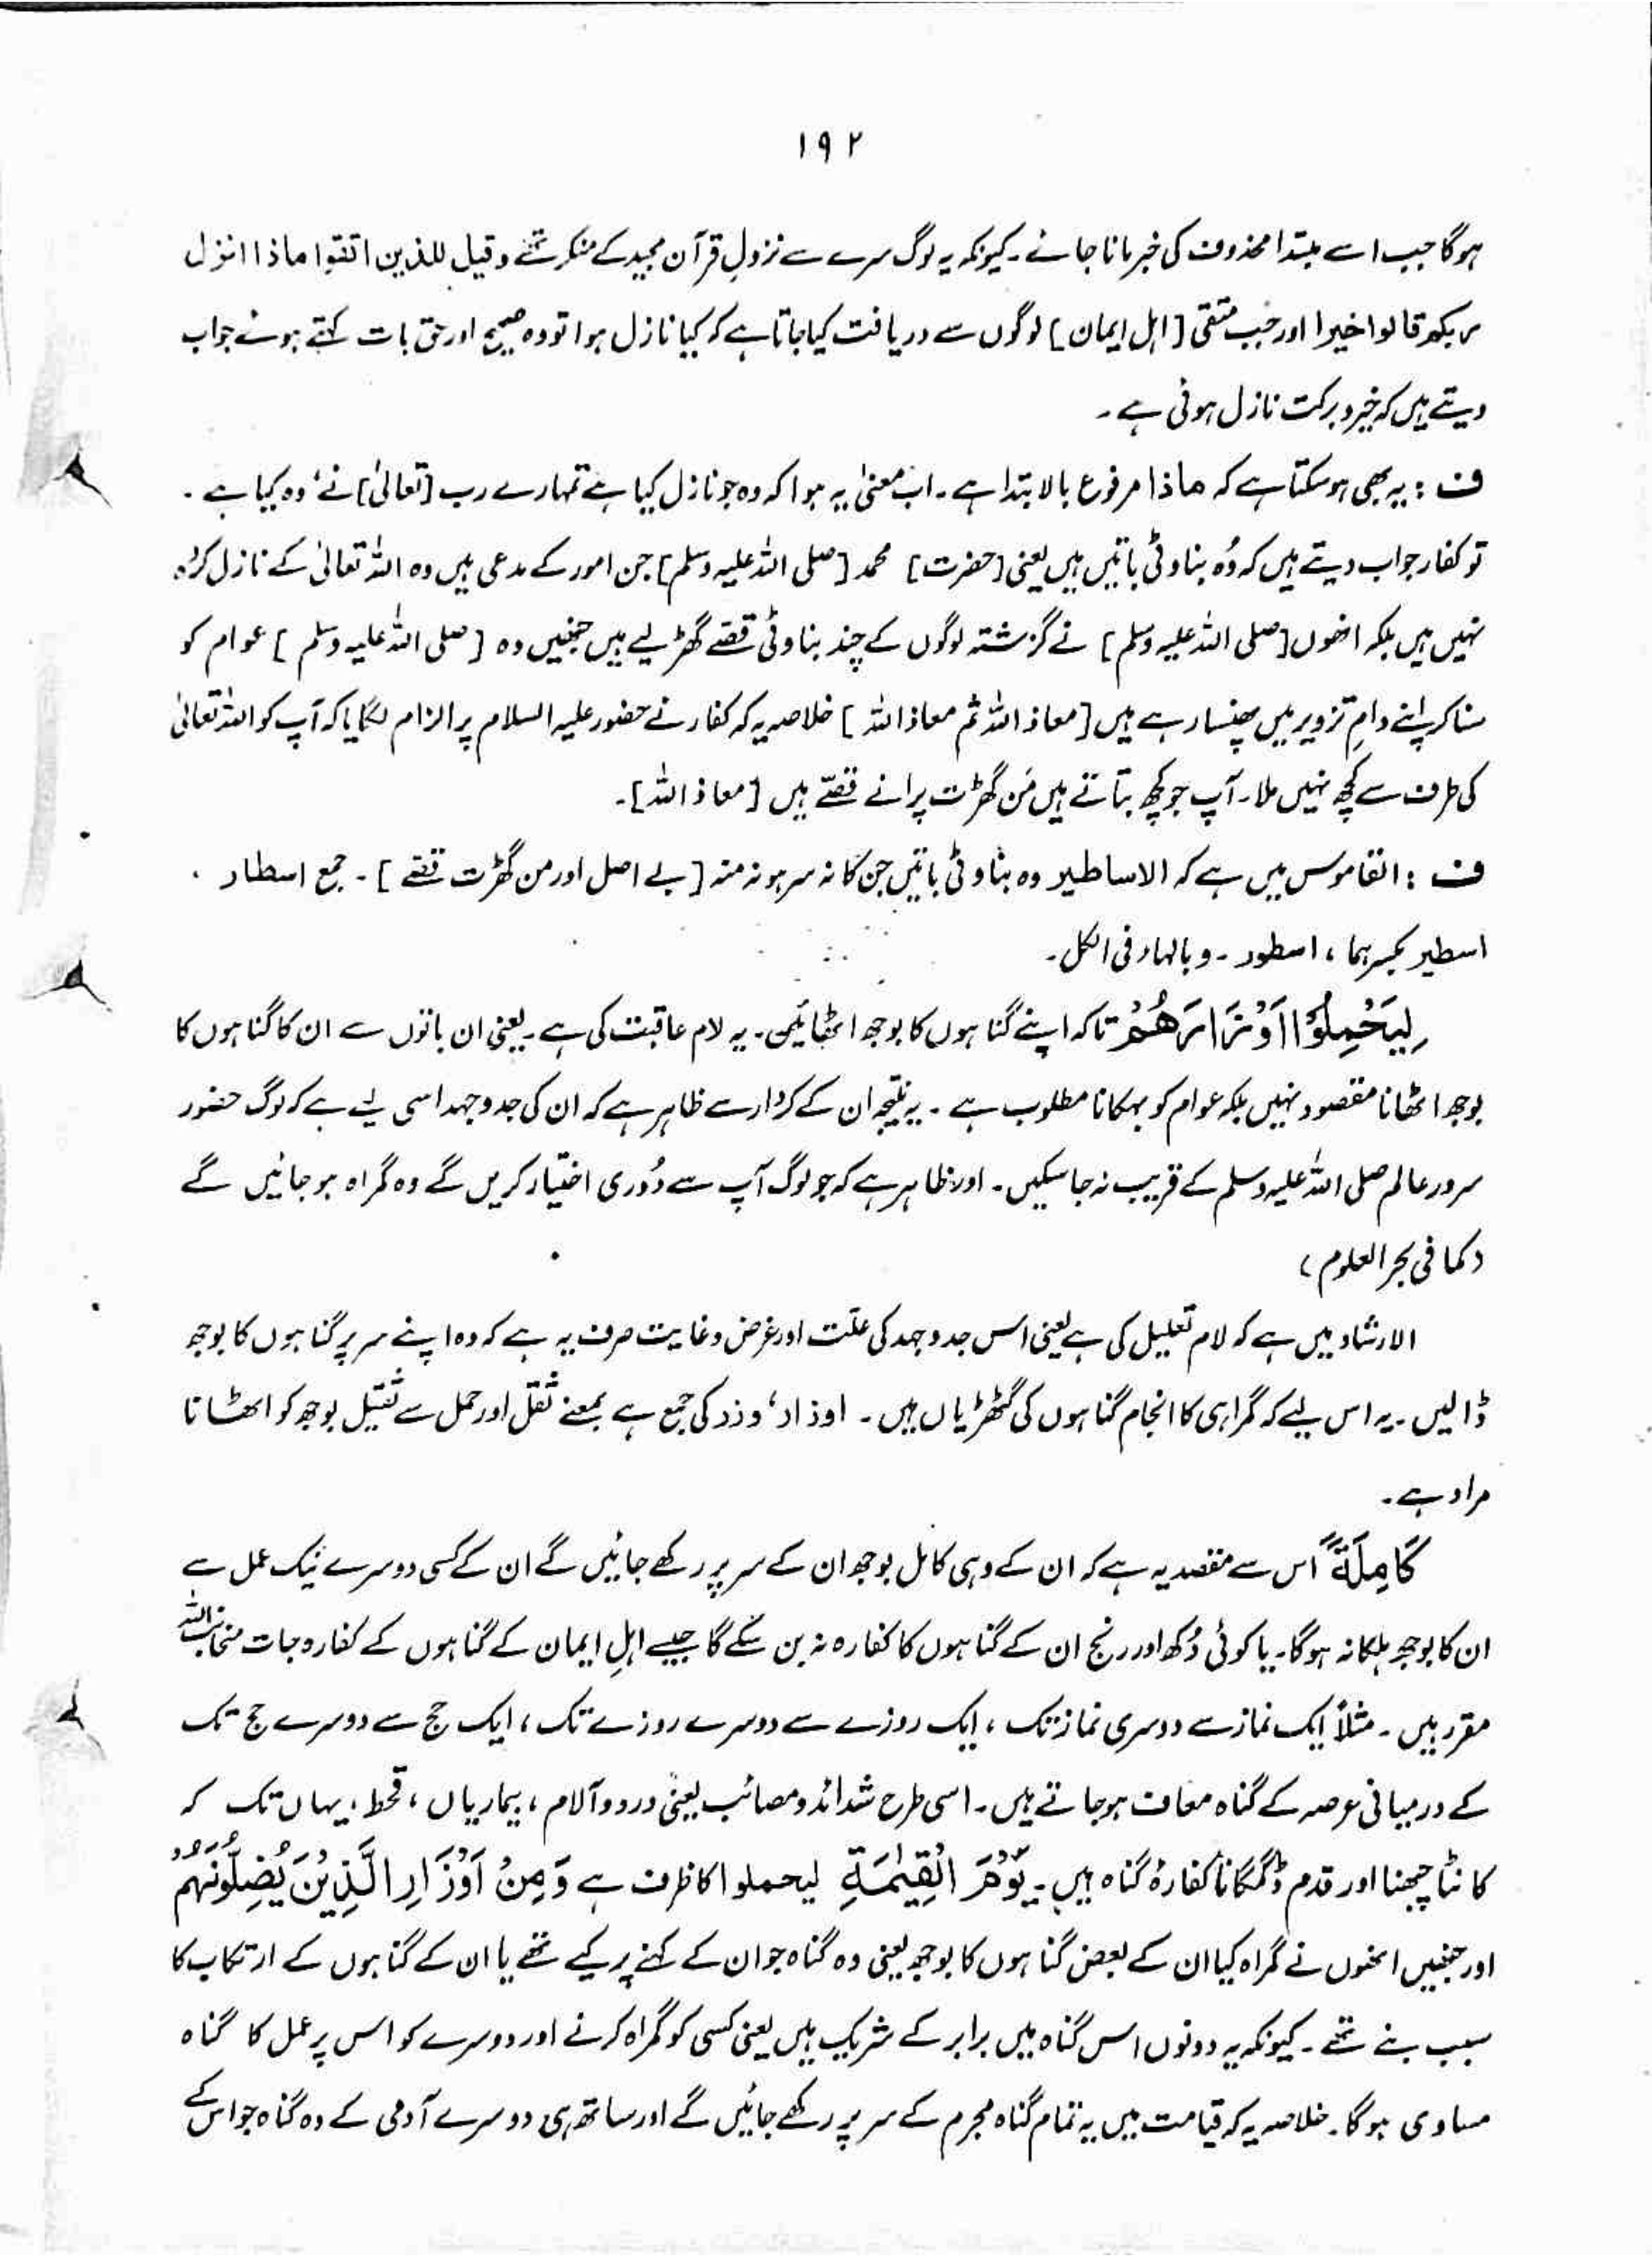 ۱۹۲
ہوگا جب اسے مبتدا محذوف کی خبر مانا جائے۔ کیونکہ یہ لوگ سرے سے نزولِ قرآن مجید کے منکر تھے وقیل للذین اتقوا ماذا انزل
ربکم قالوا خیرا اور جب متقی [اہل ایمان] لوگوں سے دریافت کیا جاتا ہے کہ کیا نازل ہوا تو وہ صحیح اور حق بات کہتے ہوئے جواب
دیتے ہیں کہ خیر و برکت نازل ہوئی ہے۔
ف : یہ بھی ہو سکتا ہے کہ ماذا مرفوع بالابتدا ہے۔ اب معنیٰ یہ ہوا کہ وہ جو نازل کیا ہے تمہارے رب [تعالیٰ] نے، وہ کیا ہے۔
تو کفار جواب دیتے ہیں کہ وُہ بناوٹی باتیں ہیں یعنی [حضرت] محمد [صلی اللہ علیہ وسلم] جن امور کے مدعی ہیں وہ اللہ تعالیٰ کے نازل کردہ
نہیں ہیں بلکہ انھوں [صلی اللہ علیہ وسلم] نے گزشتہ لوگوں کے چند بناوٹی قصّے گھڑ لیے ہیں جنھیں وہ [صلی اللہ علیہ وسلم] عوام کو
سنا کر اپنے دامِ تزویر میں پھنسا رہے ہیں [معاذ اللہ ثم معاذ اللہ] خلاصہ یہ کہ کفار نے حضور علیہ السلام پر الزام لگایا کہ آپ کو اللہ تعالیٰ
کی طرف سے کچھ نہیں ملا۔ آپ جو کچھ بتاتے ہیں مَن گھڑت پرانے قصّے ہیں [معاذ اللہ]۔
ف : القاموس میں ہے کہ الاساطیر وہ بناوٹی باتیں جن کا نہ سر ہو نہ منہ [بے اصل اور من گھڑت قصّے]۔ جمع اسطار ،
اسطیر بکسرہما ، اسطور ۔ وبالہاء فی الکل۔
لِیَحْمِلُوْۤا اَوْزَارَهُمْ تاکہ اپنے گناہوں کا بوجھ اٹھائیں۔ یہ لام عاقبت کی ہے۔ یعنی ان باتوں سے ان کا گناہوں کا
بوجھ اٹھانا مقصود نہیں بلکہ عوام کو بہکانا مطلوب ہے ۔ یہ نتیجہ ان کے کردار سے ظاہر ہے کہ ان کی جدوجہد اسی لیے ہے کہ لوگ حضور
سرورِ عالم صلی اللہ علیہ وسلم کے قریب نہ جا سکیں۔ اور ظاہر ہے کہ جو لوگ آپ سے دُوری اختیار کریں گے وہ گمراہ ہو جائیں گے
(کما فی بحر العلوم)
الارشاد میں ہے کہ لام تعلیل کی ہے یعنی اس جدوجہد کی علّت اور غرض و غایت صرف یہ ہے کہ وہ اپنے سر پر گناہوں کا بوجھ
ڈالیں ۔ یہ اس لیے کہ گمراہی کا انجام گناہوں کی گٹھڑیاں ہیں ۔ اوزار، وزر کی جمع ہے بمعنے ثقل اور حمل سے ثقیل بوجھ کو اٹھانا
مراد ہے۔
كَامِلَةً اس سے مقصد یہ ہے کہ ان کے وہی کامل بوجھ ان کے سر پر رکھے جائیں گے ان کے کسی دوسرے نیک عمل سے
ان کا بوجھ ہلکا نہ ہوگا۔ یا کوئی دُکھ اور رنج ان کے گناہوں کا کفارہ نہ بن سکے گا جیسے اہلِ ایمان کے گناہوں کے کفارہ جات منجانب اللہ
مقرر ہیں ۔ مثلاً ایک نماز سے دوسری نماز تک ، ایک روزے سے دوسرے روزے تک ، ایک حج سے دوسرے حج تک
کے درمیانی عرصہ کے گناہ معاف ہو جاتے ہیں۔ اسی طرح شدائد و مصائب یعنی درد و آلام ، بیماریاں ، قحط ، یہاں تک کہ
کانٹا چبھنا اور قدم ڈگمگانا کفارۂ گناہ ہیں۔ یَوْمَ الْقِیٰمَةِ لیحملوا کا ظرف ہے وَمِنْ اَوْزَارِ الَّذِیْنَ یُضِلُّوْنَهُمْ
اور جنھیں انھوں نے گمراہ کیا ان کے بعض گناہوں کا بوجھ یعنی وہ گناہ جو ان کے کہنے پر کیے تھے یا ان کے گناہوں کے ارتکاب کا
سبب بنے تھے ۔ کیونکہ یہ دونوں اس گناہ میں برابر کے شریک ہیں یعنی کسی کو گمراہ کرنے اور دوسرے کو اس پر عمل کا گناہ
مساوی ہوگا۔ خلاصہ یہ کہ قیامت میں یہ تمام گناہ مجرم کے سر پر رکھے جائیں گے اور ساتھ ہی دوسرے آدمی کے وہ گناہ جو اس کے